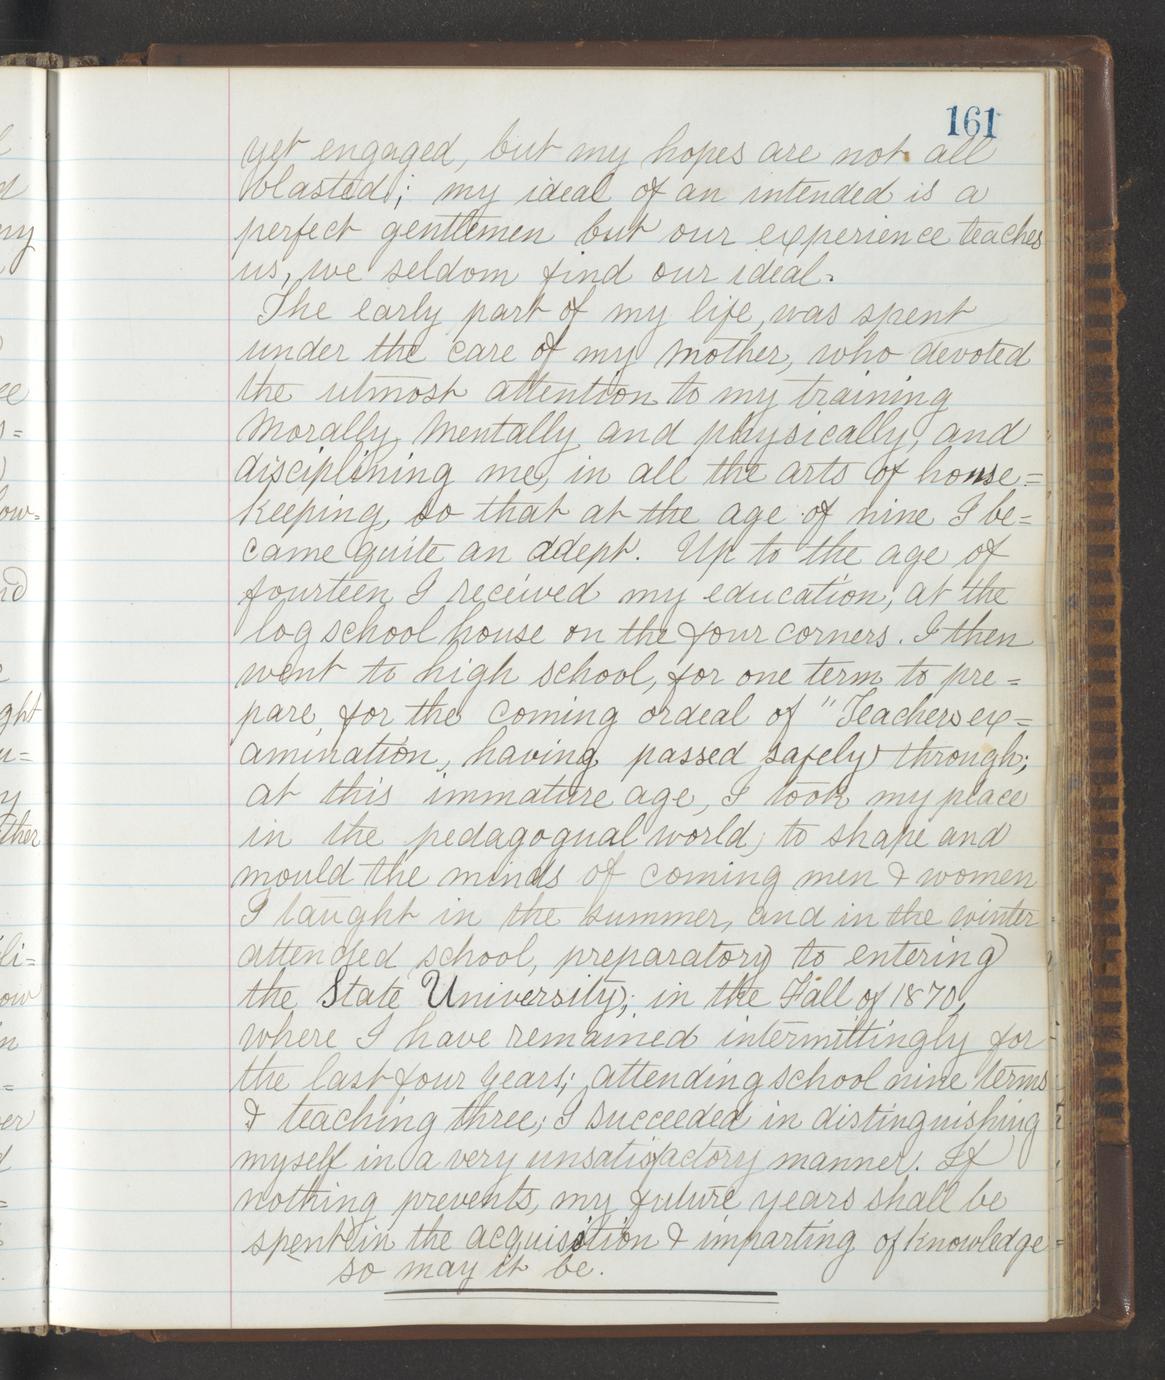 161
yet engaged, but my hopes are not all
blasted; my ideal of an intended is a
perfect gentlemen but our experience teaches
us, we seldom find our ideal.
The early part of my life, was spent
under the care of my Mother, who devoted
the utmost attention to my training
Morally, Mentally and physically, and
disciplining me, in all the arts of house=
keeping, so that at the age of nine I be=
came quite an adept. Up to the age of
fourteen I received my education, at the
log school house on the four corners. I then
went to high school, for one term to pre=
pare, for the coming ordeal of "Teachers ex=
amination, having passed safely through;
at this immature age, I took my place
in the pedagogual world, to shape and
mould the minds of coming men & women
I taught in the summer, and in the winter
attended school, preparatory to entering
the State University; in the Fall of 1870,
where I have remained intermittingly for
the last four years; attending school nine terms
& teaching three; I succeeded in distinguishing
myself in a very unsatisfactory manner. If
nothing prevents, my future years shall be
spent in the acquisition & imparting of knowledge
so may it be.